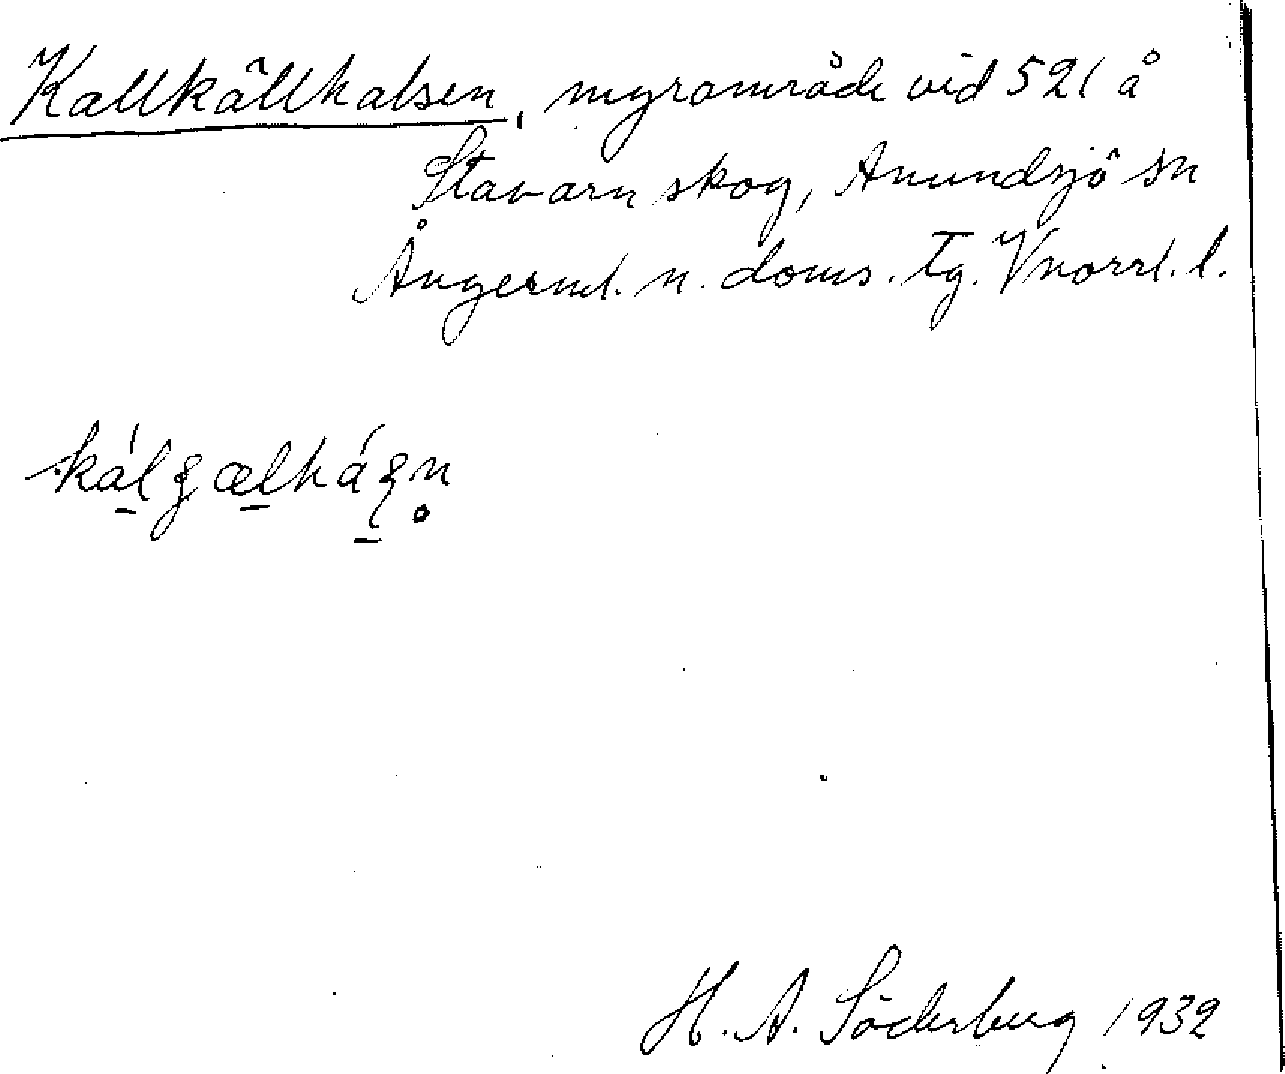 Kallkällhalsen, myrområde vid 521 å
Stavarn skog, Anundsjö sn
Ångerml. n. doms. tg. Vnorrl. l.
H. A. Söderberg 1932